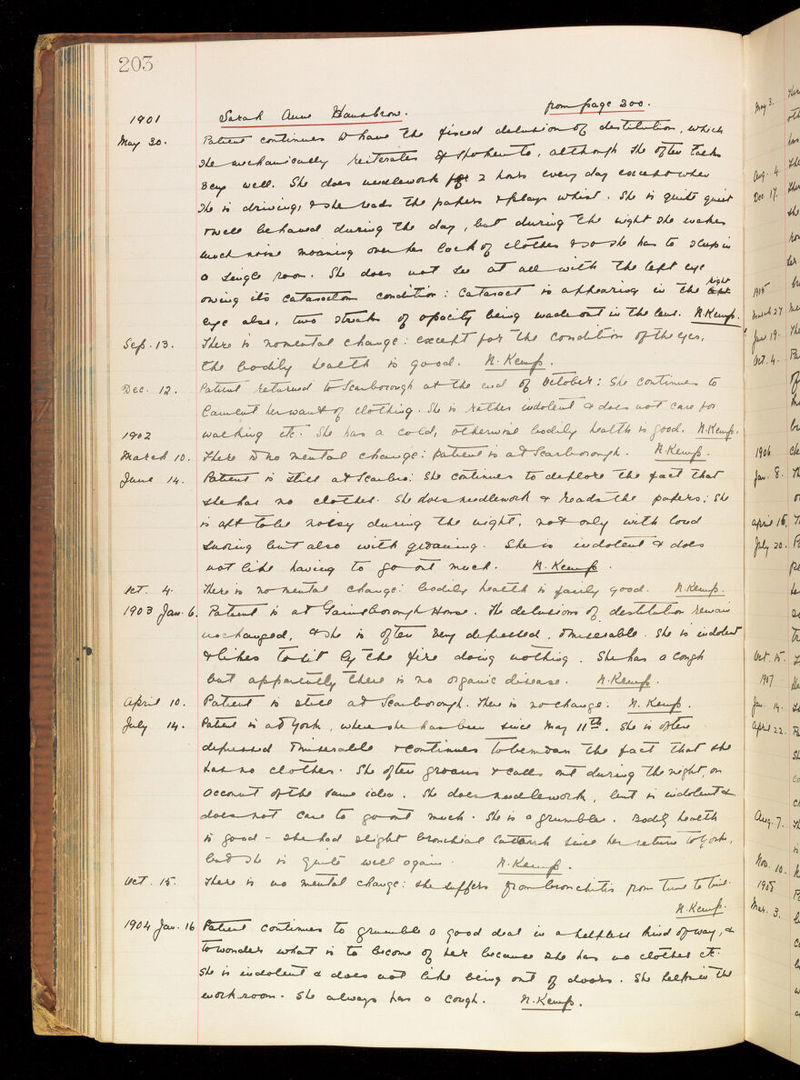 203
Sarah Anne Hansbrow. from page 200.
1901
May 30. Patient continues to have the fixed delusion of destitution, which
she mechanically reiterates if spoken to, although she often talks
very well. She does needlework for 2 hours every day except when
she is driving, & she reads the papers & plays whist. She is quite quiet
& well behaved during the day, but during the night she makes
much noise moaning over her lack of clothes & so she has to sleep in
a single room. She does not see at all with the left eye
owing its cataractous condition: Cataract is appearing in the right
eye also, two streaks of opacity being made out in the lens. N. Kemp.
Sep. 13. There is no mental change: except for the condition of the eyes,
the bodily health is good. N. Kemp.
Dec. 12. Patient returned to Scarborough at the end of October: she continues to
lament her want of clothing. She is rather indolent & does not care for
1902 walking etc. She has a cold, otherwise bodily health is good. N. Kemp.
March 10. There is no mental change: patient is at Scarborough. N. Kemp.
June 14. Patient is still at Scarbro: She continues to deplore the fact that
she has no clothes. She does needlework & reads the papers; she
is apt to be noisy during the night, not only with loud
snoring but also with groaning. She is indolent & does
not like having to go out much. N. Kemp.
Oct. 4. There is no mental change: bodily health is fairly good. N. Kemp.
1903 Jan. 6. Patient is at Gainsborough House. The delusions of destitution remain
unchanged, & she is often very depressed & miserable. She is indolent
& likes to sit by the fire doing nothing. She has a cough
but apparently there is no organic disease. N. Kemp.
April 10. Patient is still at Scarborough. There is no change. N. Kemp.
July 14. Patient is at York, where she has been since May 11th. She is often
depressed & miserable & continues to bemoan the fact that she
has no clothes. She often groans & calls out during the night, on
account of the same idea. She does needlework, but is indolent &
does not care to go out much. She is a grumbler. Bodily health
is good - she had slight bronchial catarrh since her return to York,
but she is quite well again. N. Kemp.
Oct. 15. There is no mental change: she suffers from bronchitis from time to time.
N. Kemp.
1904 Jan. 16 Patient continues to grumble a good deal in a helpless kind of way, &
to wonder what is to become of her because she has no clothes etc.
She is indolent & does not like being out of doors. She helps in the
workroom. She always has a cough. N. Kemp.
May 3.
Aug. 4
Dec 17.
1905
March 27
June 19.
Oct. 4.
1906
Jan. 8.
April 16.
July 20.
Oct. 15.
1907
Jan. 14.
April 22.
Aug. 7.
Nov. 10.
1908
Mar. 3.